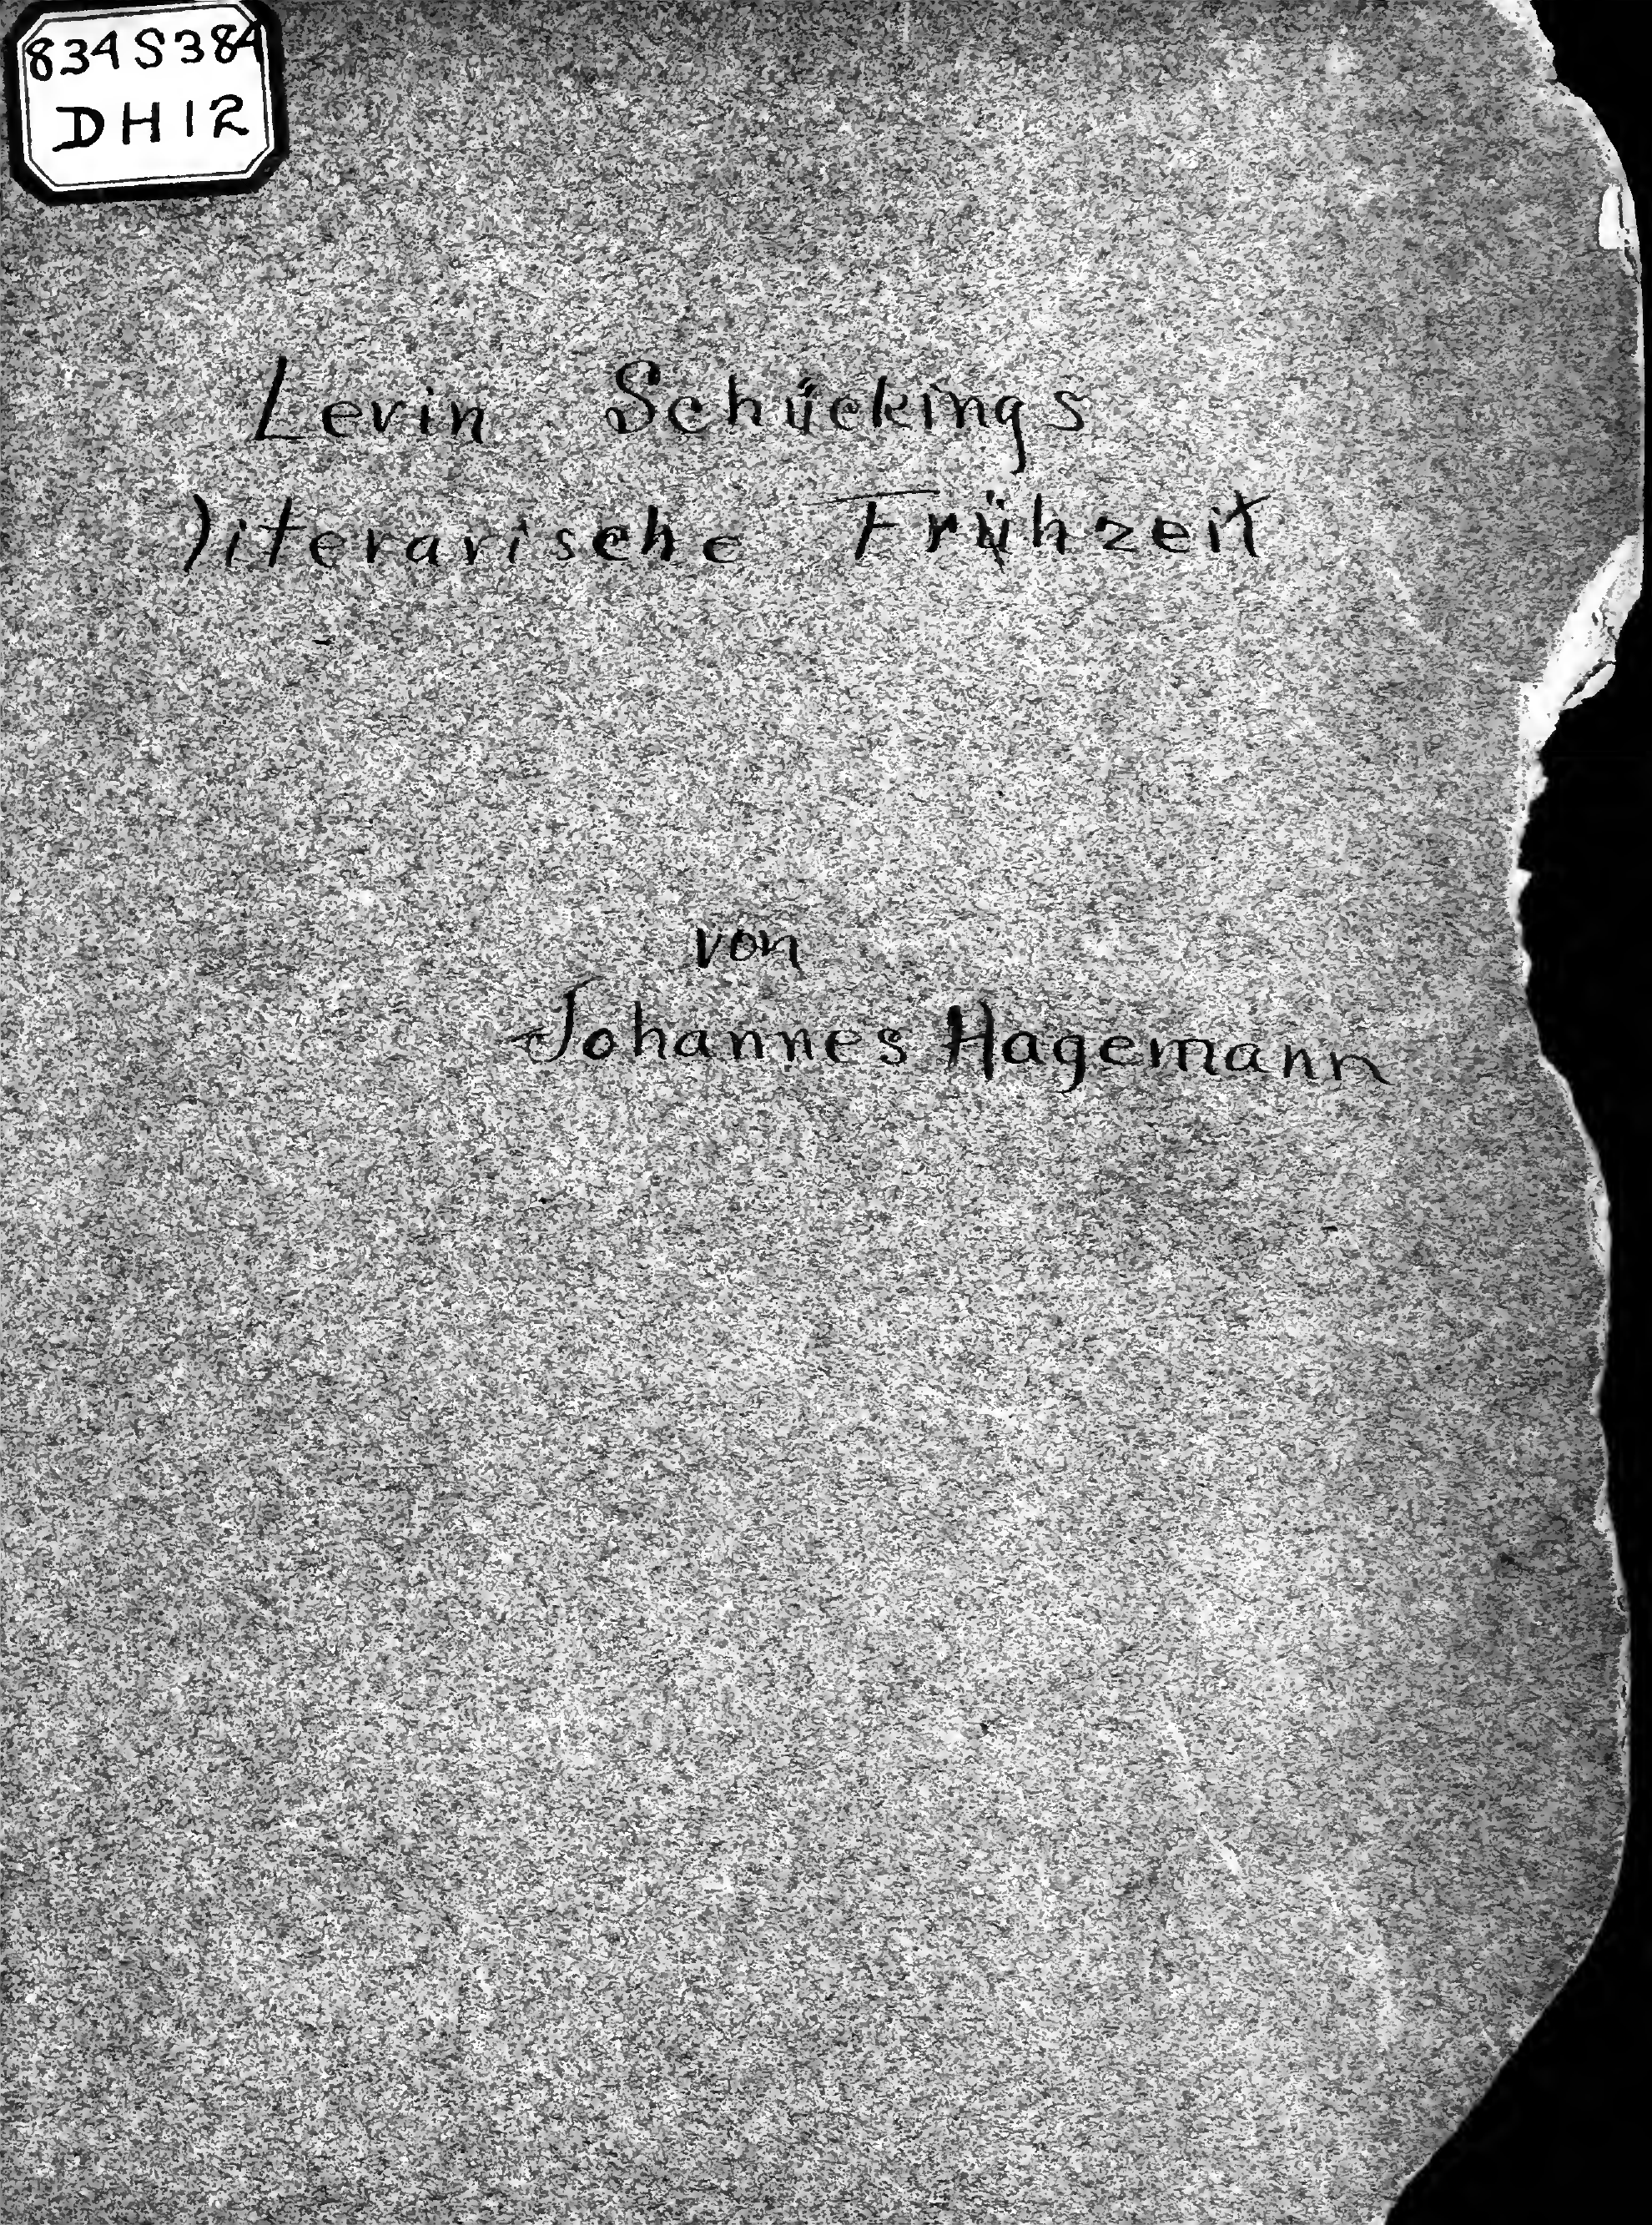 834S384
DH12
Levin Schückings
literarische Frühzeit
von
Johannes Hagemann